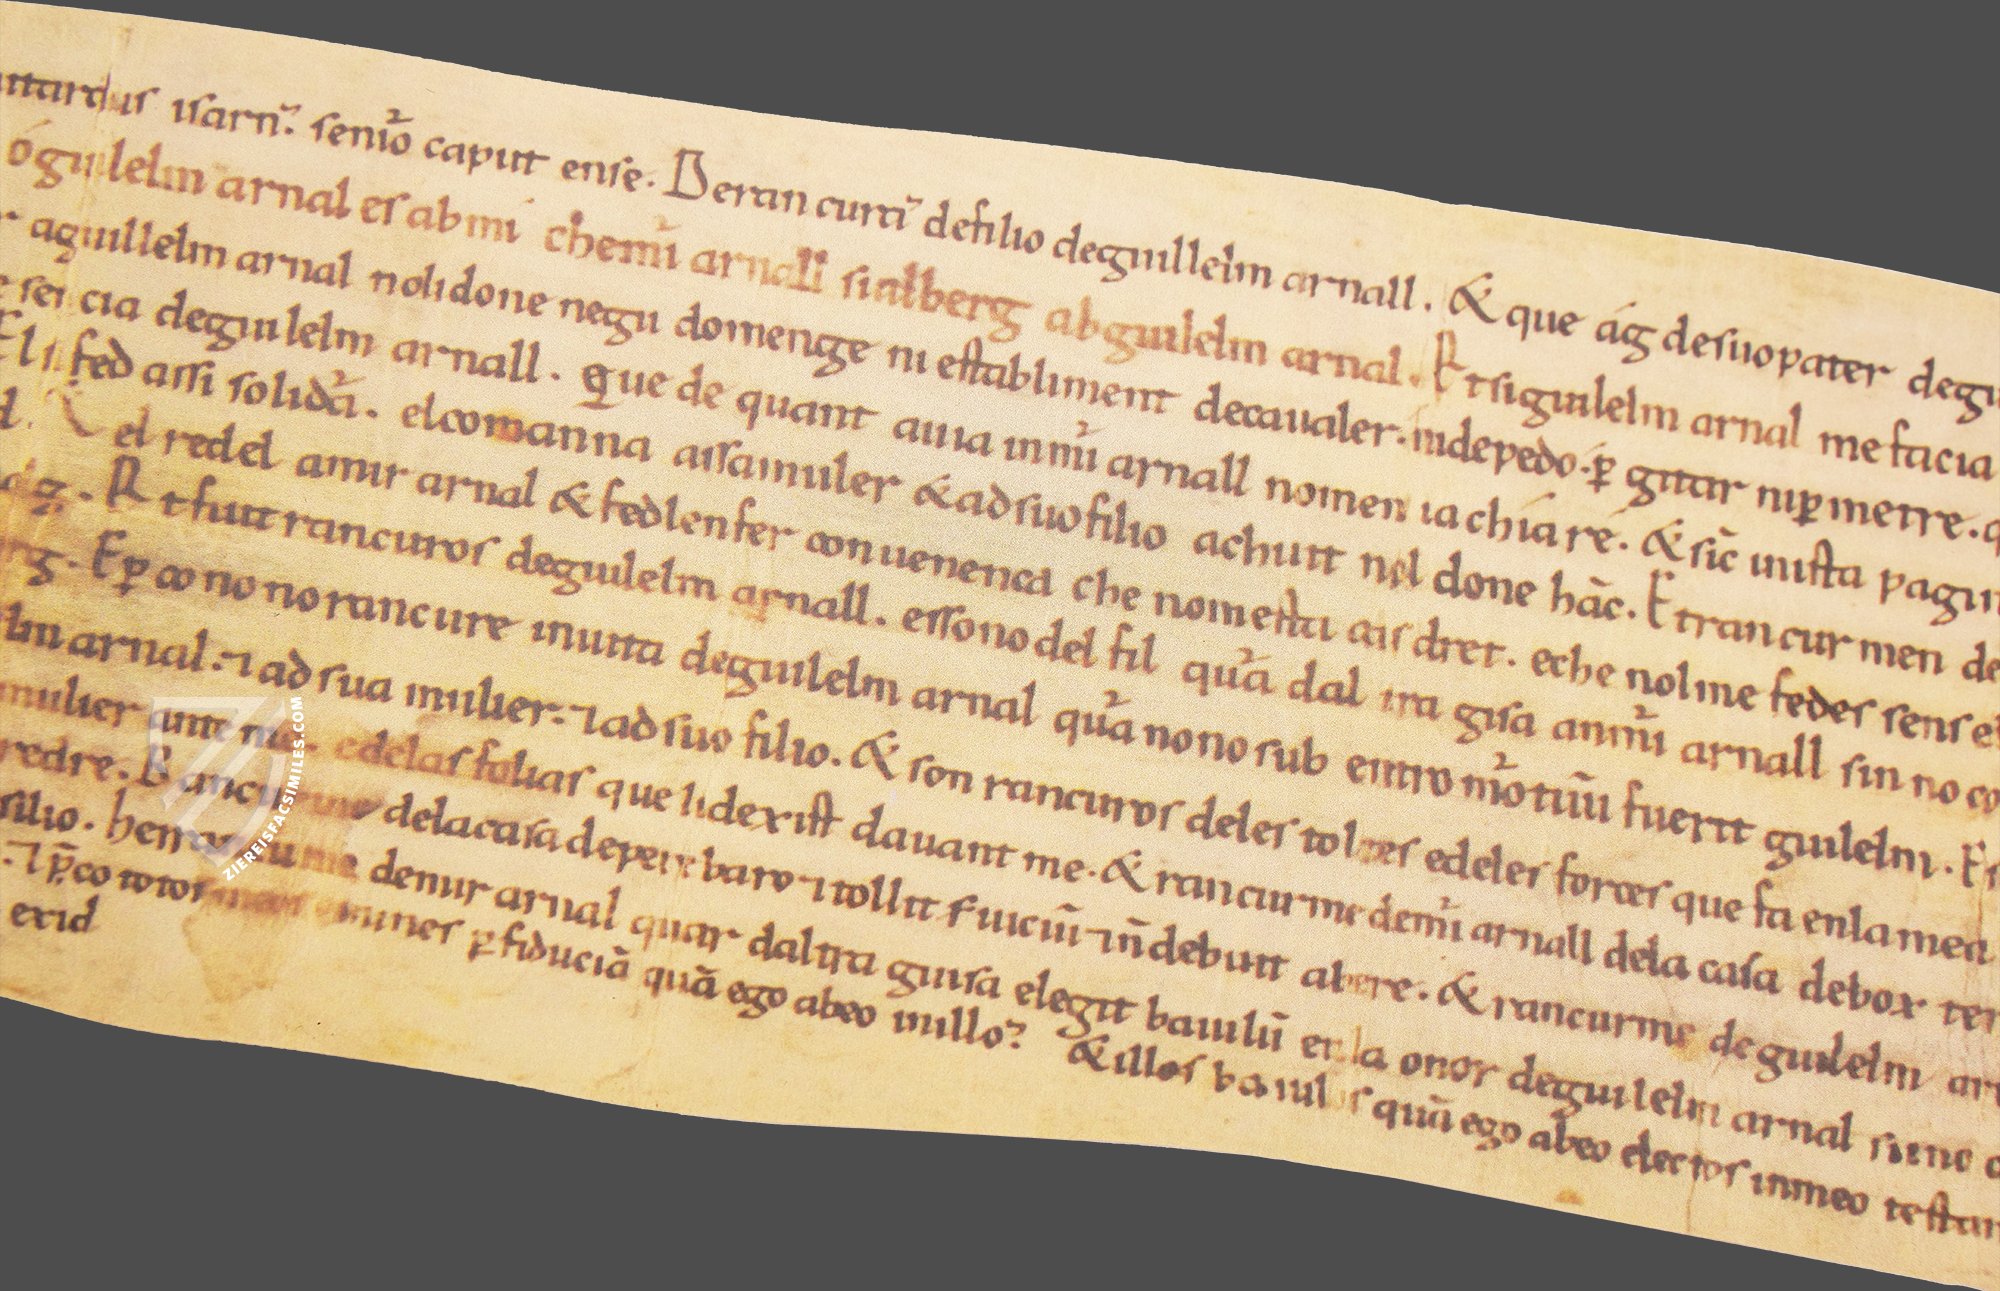 ıttardus isarnꝰ. seniõ caput ense. De rancurã de filio de guillelm arnall. & que ág de suo pater degu
óguilelm arnal es ab mí che mír arnall si alberg ab guilelm arnal. Et si guilelm arnal me facia
aguillelm arnal noli done negu domenge ni establiment de cavaler. ni de pedó. ꝑ gitar ni ꝑ metre. q
sei cia de guilelm arnall. que de quant avia in mír arnall no men ia chía ré. & sic iusta pagin
El fed assi solidar. el comanna aissa muler & ad suo filio achutt nol done hãc. Et rancur men de
d. el redel a mir arnal & fed len fer convenenca che no menta ais dret. e che nol me fedes sens e
ag. Et fuit rancuros de guilelm arnall. esso no del fil quĩa dal tra gisa an mír arnall sin no co
rg. E ꝑ co no no rancure in utta de guilelm arnal quĩa no no sub entro mõ tuũ fuerit guilelm. E
lm arnal. ⁊ ad sua mulier. ⁊ ad suo filio. & son rancuros deles toltes e deles forces que fa en la mea
mulier ante me. e delas folias que li dexist davant me. & rancur me de mír arnall de la casa de box ter
redre. Rancur me de la casa de pere baro ⁊ tollit serviciũ ⁊ nõ debuit abere. & rancurme de guilelm ar
filio. de mir arnal quar daltra guisa elegit baiulũ en la onor de guilelm arnal sine
⁊ ꝓ co totos meos omines ꝑ fiduciã quã ego abeo in illoꝝ & illos baiulos quã ego abeo electos in meo testam
exid
ZIEREISFACSIMILES.COM